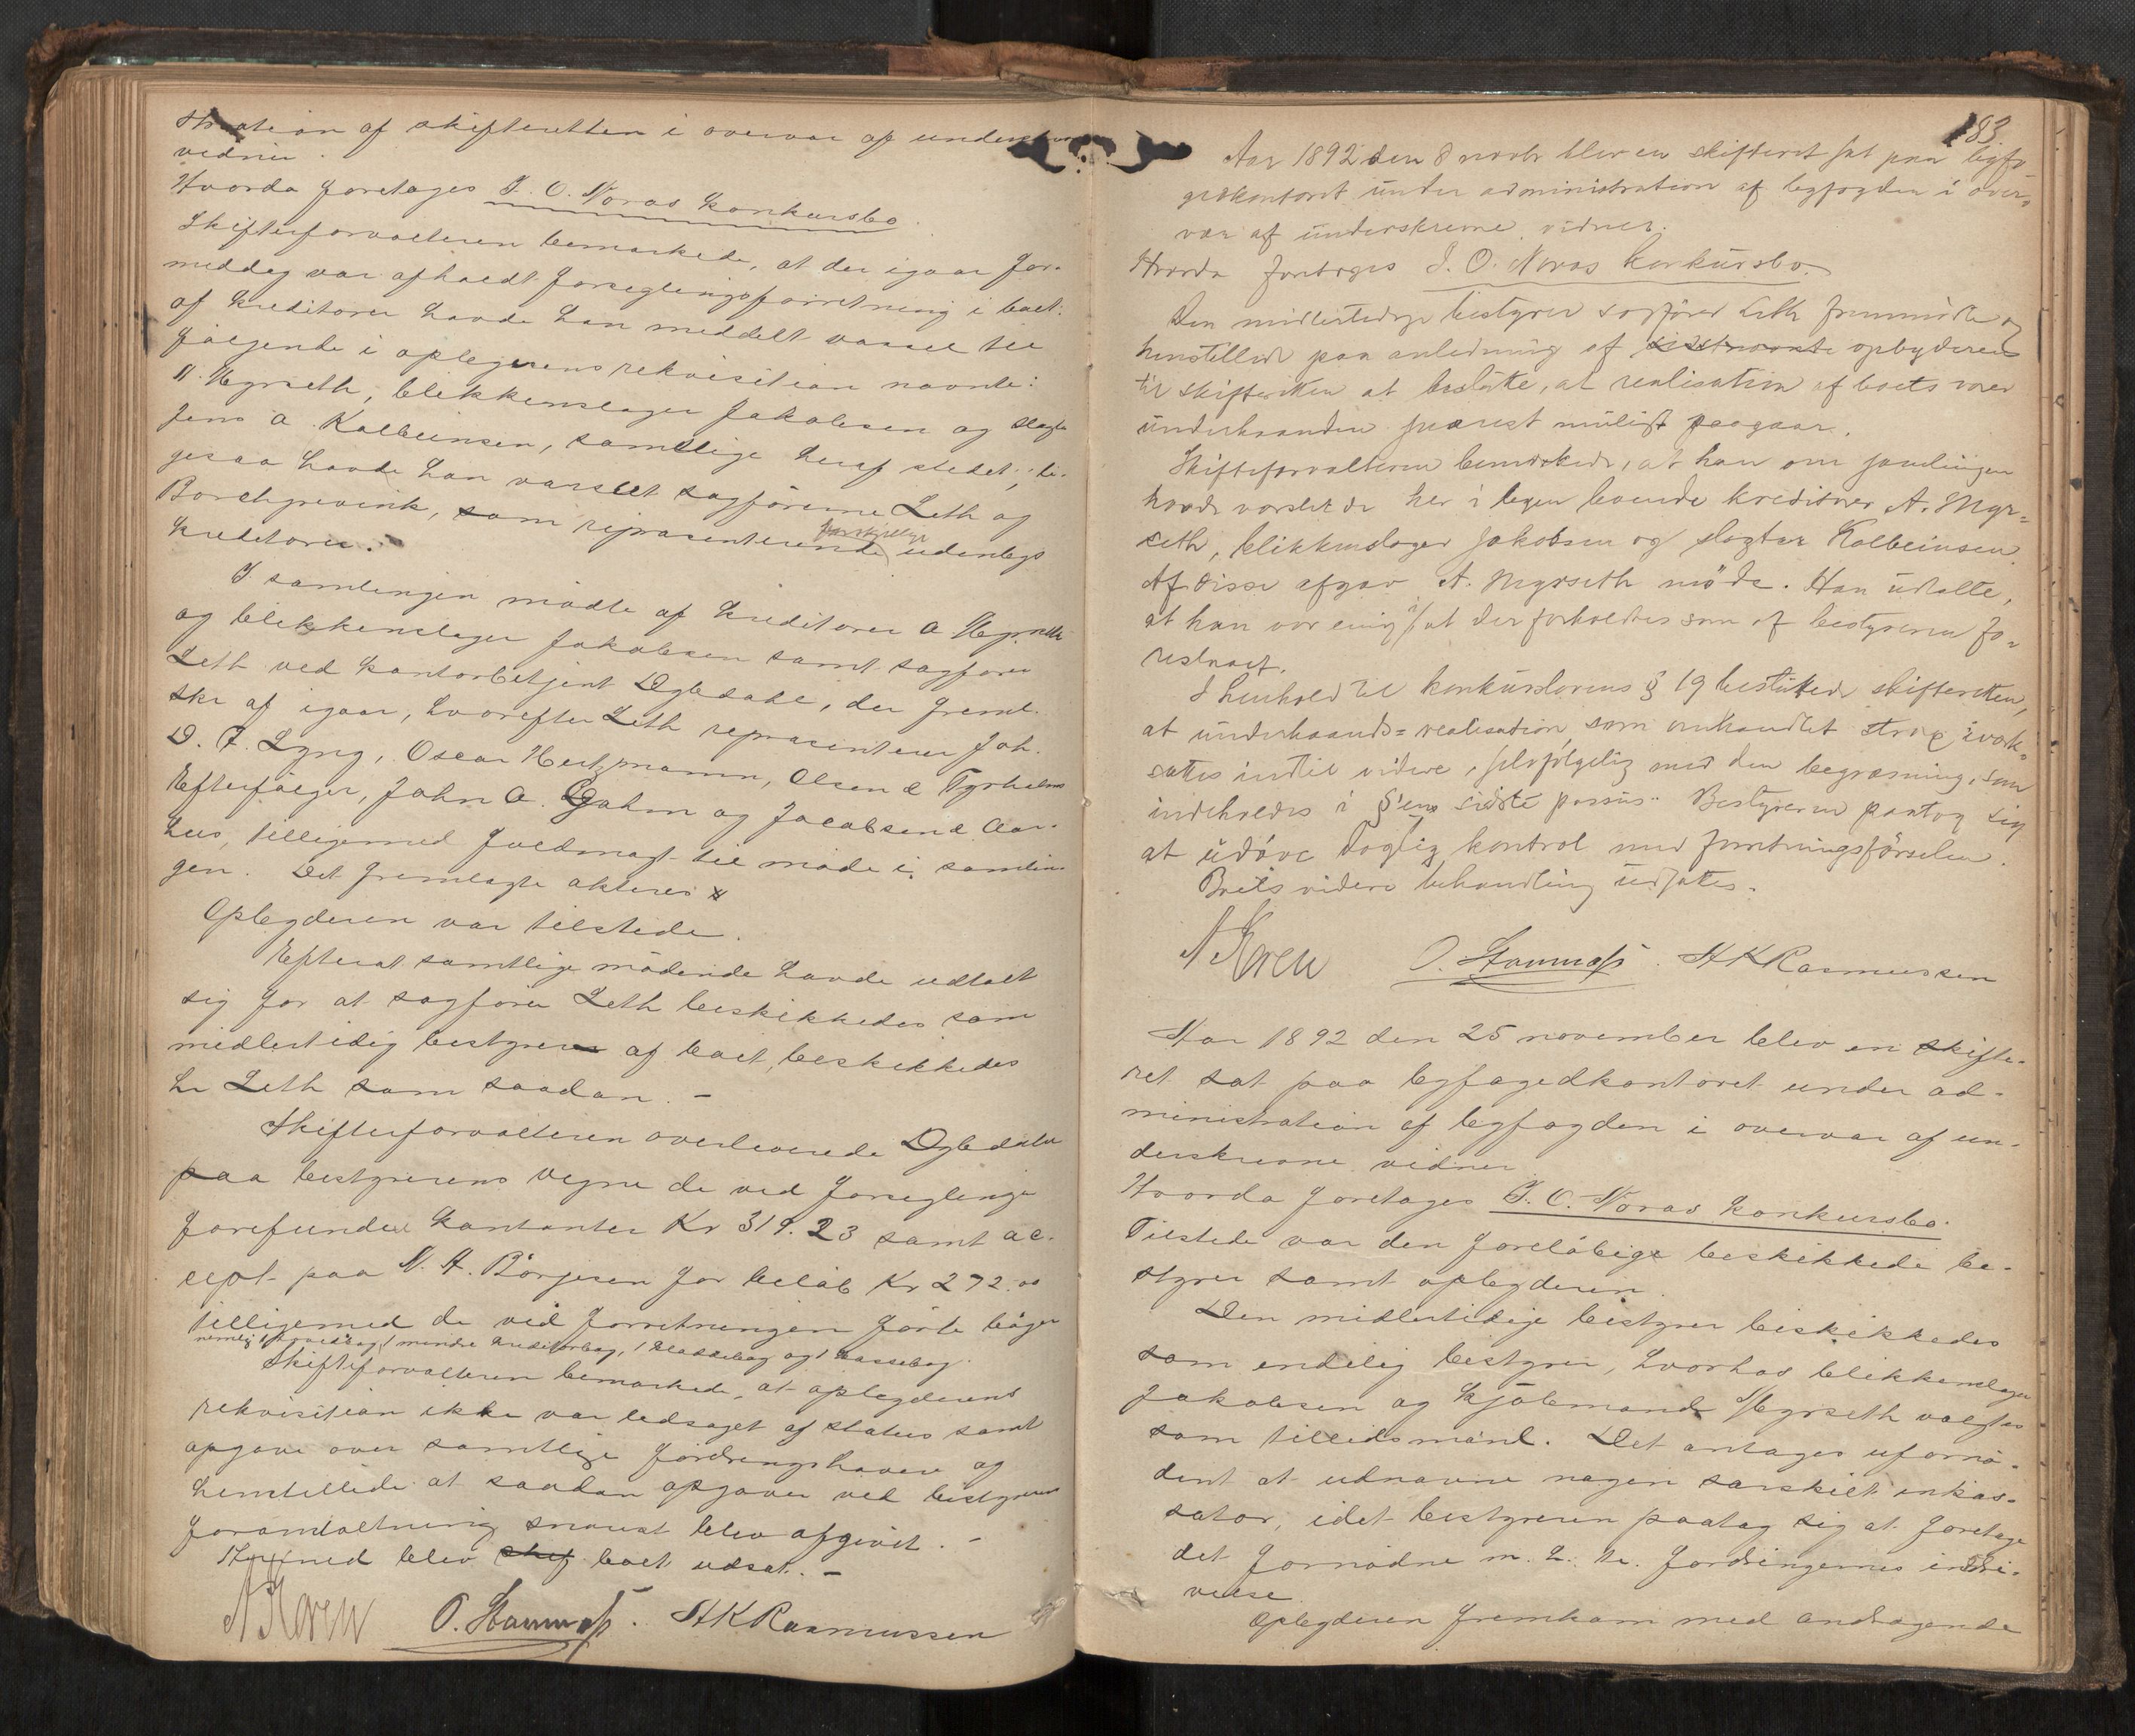 stration af skifteretten i overvær af underskrevne
vidner.
Hvorda foretages J. O. Noras konkursbo.
Skifteforvalteren bemærkede, at der igaar for-
middag var afholdt forseglingsforretning i boet.
Af kreditorer havde han meddelt varsel til
følgende i opbyderens rekvisition nævnte:
A. Myrseth, blikkenslager Jakobsen og slagter
Jens A. Kolbeinsen, samtlige heraf stedet; li-
gesaa havde han varslet sagførerne Leth og
Borchgrevink, som repræsenterende forskjellige udenbys
kreditorer.
I samlingen mødte af kreditorer A Myrseth
og blikkenslager Jakobsen samt sagfører
Leth ved kontorbetjent Dybdahl, der freml.
skr af igaar, hvorefter Leth repræsenterer Joh.
D. F. Lyng, Oscar Hertzmann, Olsen & Tyrholms
Efterfølger, John A. Gahm og Jacobsen & Aar-
hus, tilligemed fuldmagt til møde i samlin-
gen. Det fremlagte akteres
Opbyderen var tilstede.
Efterat samtlige mødende havde udtalt
sig for at sagfører Leth beskikkedes som
midlertidig bestyrer af boet, beskikkedes
hr Leth som saadan. –
Skifteforvalteren overleverede Dybdahl
paa bestyrerens vegne de ved forseglingen
forefundne kontanter Kr 319.23 samt ac-
cept paa N. A. Børjesen for beløb Kr 272.00
tilligemed de ved forretningen førte bøger
nemlig 1 hovedbog, 1 mindre kreditorbog, 1 kladdebog og 1 kassebog.
Skifteforvalteren bemærkede, at opbyderens
rekvisition ikke var ledsaget af status samt
opgave over samtlige fordringshavere og
henstillede at saadan opgaver ved bestyrerens
foranstaltning snarest blev afgivet. –
Hermed blev skif boet udsat. –
A Koren O. Stammes. HKRasmussen
183.
Aar 1892 den 8 novbr blev en skifteret sat paa byfo-
gedkontoret under administration af byfogden i over-
vær af underskrevne vidner.
Hvorda foretoges J. O. Noras konkursbo.
Den midlertidige bestyrer sagfører Leth fremmødte og
henstillede paa anledning af sidstnævnte opbyderen
til skifteretten at beslutte, at realisation af boets varer
underhaanden snarest muligt paagaar.
Skifteforvalteren bemærkede, at han om samlingen
havde varslet de her i byen boende kreditorer A. Myr-
seth, blikkenslager Jakobsen og slagter Kolbeinsen.
Af disse afgav A. Myrseth møde. Han udtalte,
at han var enig i at der forholdtes som af bestyreren fo-
reslaaet.
I henhold til konkurslovens § 19 besluttede skifteretten,
at underhaands-realisation som omhandlet strax iværk-
sattes indtil videre, selvfølgelig med den begrænsning, som
indeholdes i §'ens sidste passus. Bestyreren paatog sig
at udøve daglig kontrol med forretningsførselen.
Boets videre behandling udsattes.
A Koren O. Stammes. HKRasmussen
Aar 1892 den 25 november blev en skifte-
ret sat paa byfogedkontoret under ad-
ministration af byfogden i overvær af un-
derskrevne vidner
Hvorda foretages J. O. Noras konkursbo.
Tilstede var den foreløbige beskikkede be-
styrer samt opbyderen.
Den midlertidige bestyrer beskikkedes
som endelig bestyrer, hvorhos blikkenslager
Jakobsen og kjøbmand Myrseth valgtes
som tillidsmænd. Det antages ufornø-
dent at udnævne nogen særskilt inkas-
sator, idet bestyreren paatog sig at foretage
det fornødne m. h. t. fordringernes inddri-
velse.
Opbyderen fremkom med andragende